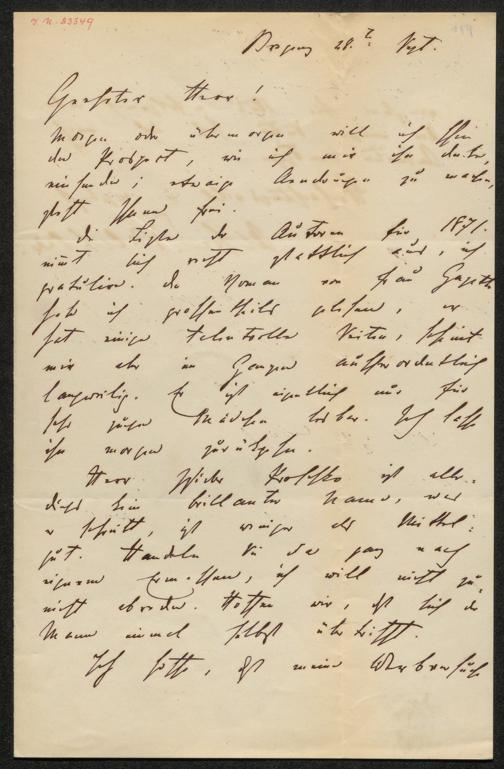 I.N. 83349
Bregenz 28. t Sept.
Geehrter Herr!
Morgen oder übermorgen will ich Ihnen
den Prospect, wie ich mir ihn denke,
einsenden; etwaige Aenderungen zu machen,
steht Ihnen frei.
Die Liste der Autoren für 1871.
nimmt sich recht stattlich aus, ich
gratulire. Den Roman von Frau
habe ich grossentheils gelesen, er
hat einige talentvolle Seiten, scheint
mir aber im Ganzen ausserordentlich
langweilig. Er ist eigentlich nur für
sehr junge Mädchen lesbar. Ich lasse
ihn morgen zurückgehen.
Herr Proschko ist aller-
dings kein brillanter Name, was
er schreibt, ist weniger als Mittel-
gut. Handeln Sie da ganz nach
eigenem Ermessen, ich will nicht zu,
nicht abreden. Hoffen wir, daß sich der
Mann einmal selbst übertrifft.
Ich hoffe, daß meine